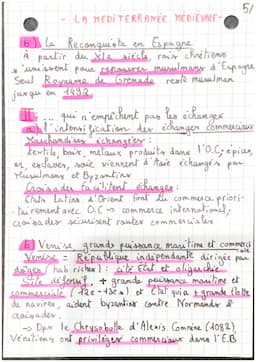 5/
- LA MEDITERRANÉE MEDIÉVALE -
b) La Reconquista en Espagne
A partir du XIe siècle, rois chrétiens
s'unissent pour repousser musulmans d'Espagne
Seul Royaume de Grenade reste musulman
jusqu'en 1492
II ... qui n'empêchent pas les échanges
a) l'intensification des échanges commerciaux
Marchandises échangées :
textile, bois, métaux produits dans l'O.C, épices,
or, esclaves, soie viennent d'Asie échangés par
Musulmans et Byzantins
Croisades facilitent échanges :
Etats latins d'Orient font du commerce priori-
tairement avec O.C → commerce international,
croisades sécurisent routes commerciales
b) Venise, grande puissance maritime et commerci
Venise = République indépendante dirigée par
doges (hab riches) : cité Etat et oligarchie
+ grande puissance maritime et
commerciale (12e - 13e s) et Etat qui a + grande flotte
de navires, aident byzantins contre Normands &
croisades :
→ Dps le Chrysobulle d'Alexis Comnène (1082)
Vénitiens ont privilèges commerciaux dans l'E.B